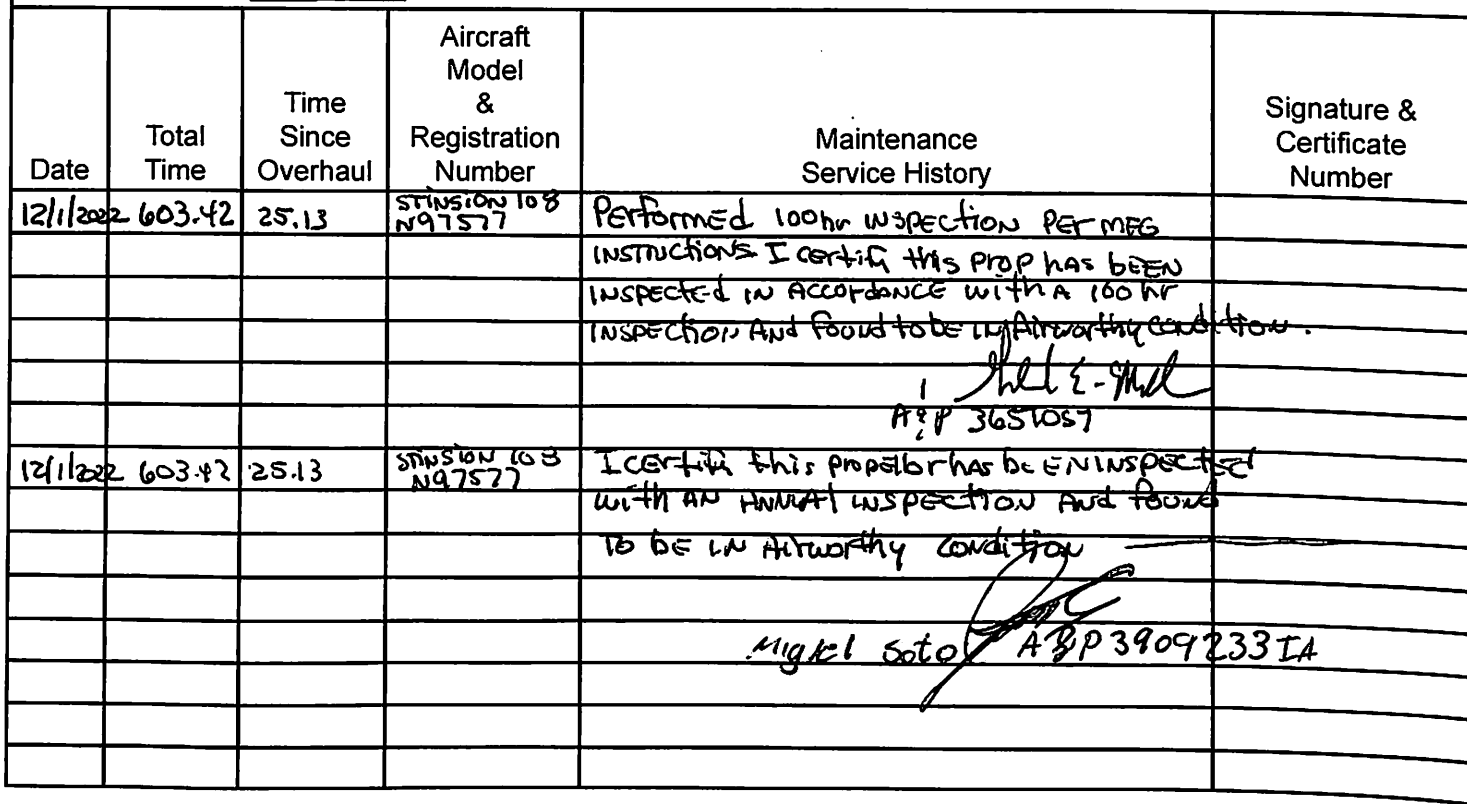 Date
Total
Time
Time
Since
Overhaul
Aircraft
Model
&
Registration
Number
Maintenance
Service History
Signature &
Certificate
Number
12/1/2022 603.42 25.13 STINSION 108 PErformEd 100hr INSPECtiON PEr MFG
N97577
INSTrUCtiONS I certify this Prop hAS bEEN
INSPEctEd IN AccordANCE with A 100 hr
INSPECtiON ANd Found to be IN Airworthy Condition.
A&P 3651057
12/1/2022 603.42 25.13 STINSION 108 I CErtify this propellor has bEEN INSPECtEd
N97577
with AN ANNUAl INSPECTION ANd FOUNd
TO bE IN Airworthy condition
Miguel Soto A&P3909233IA